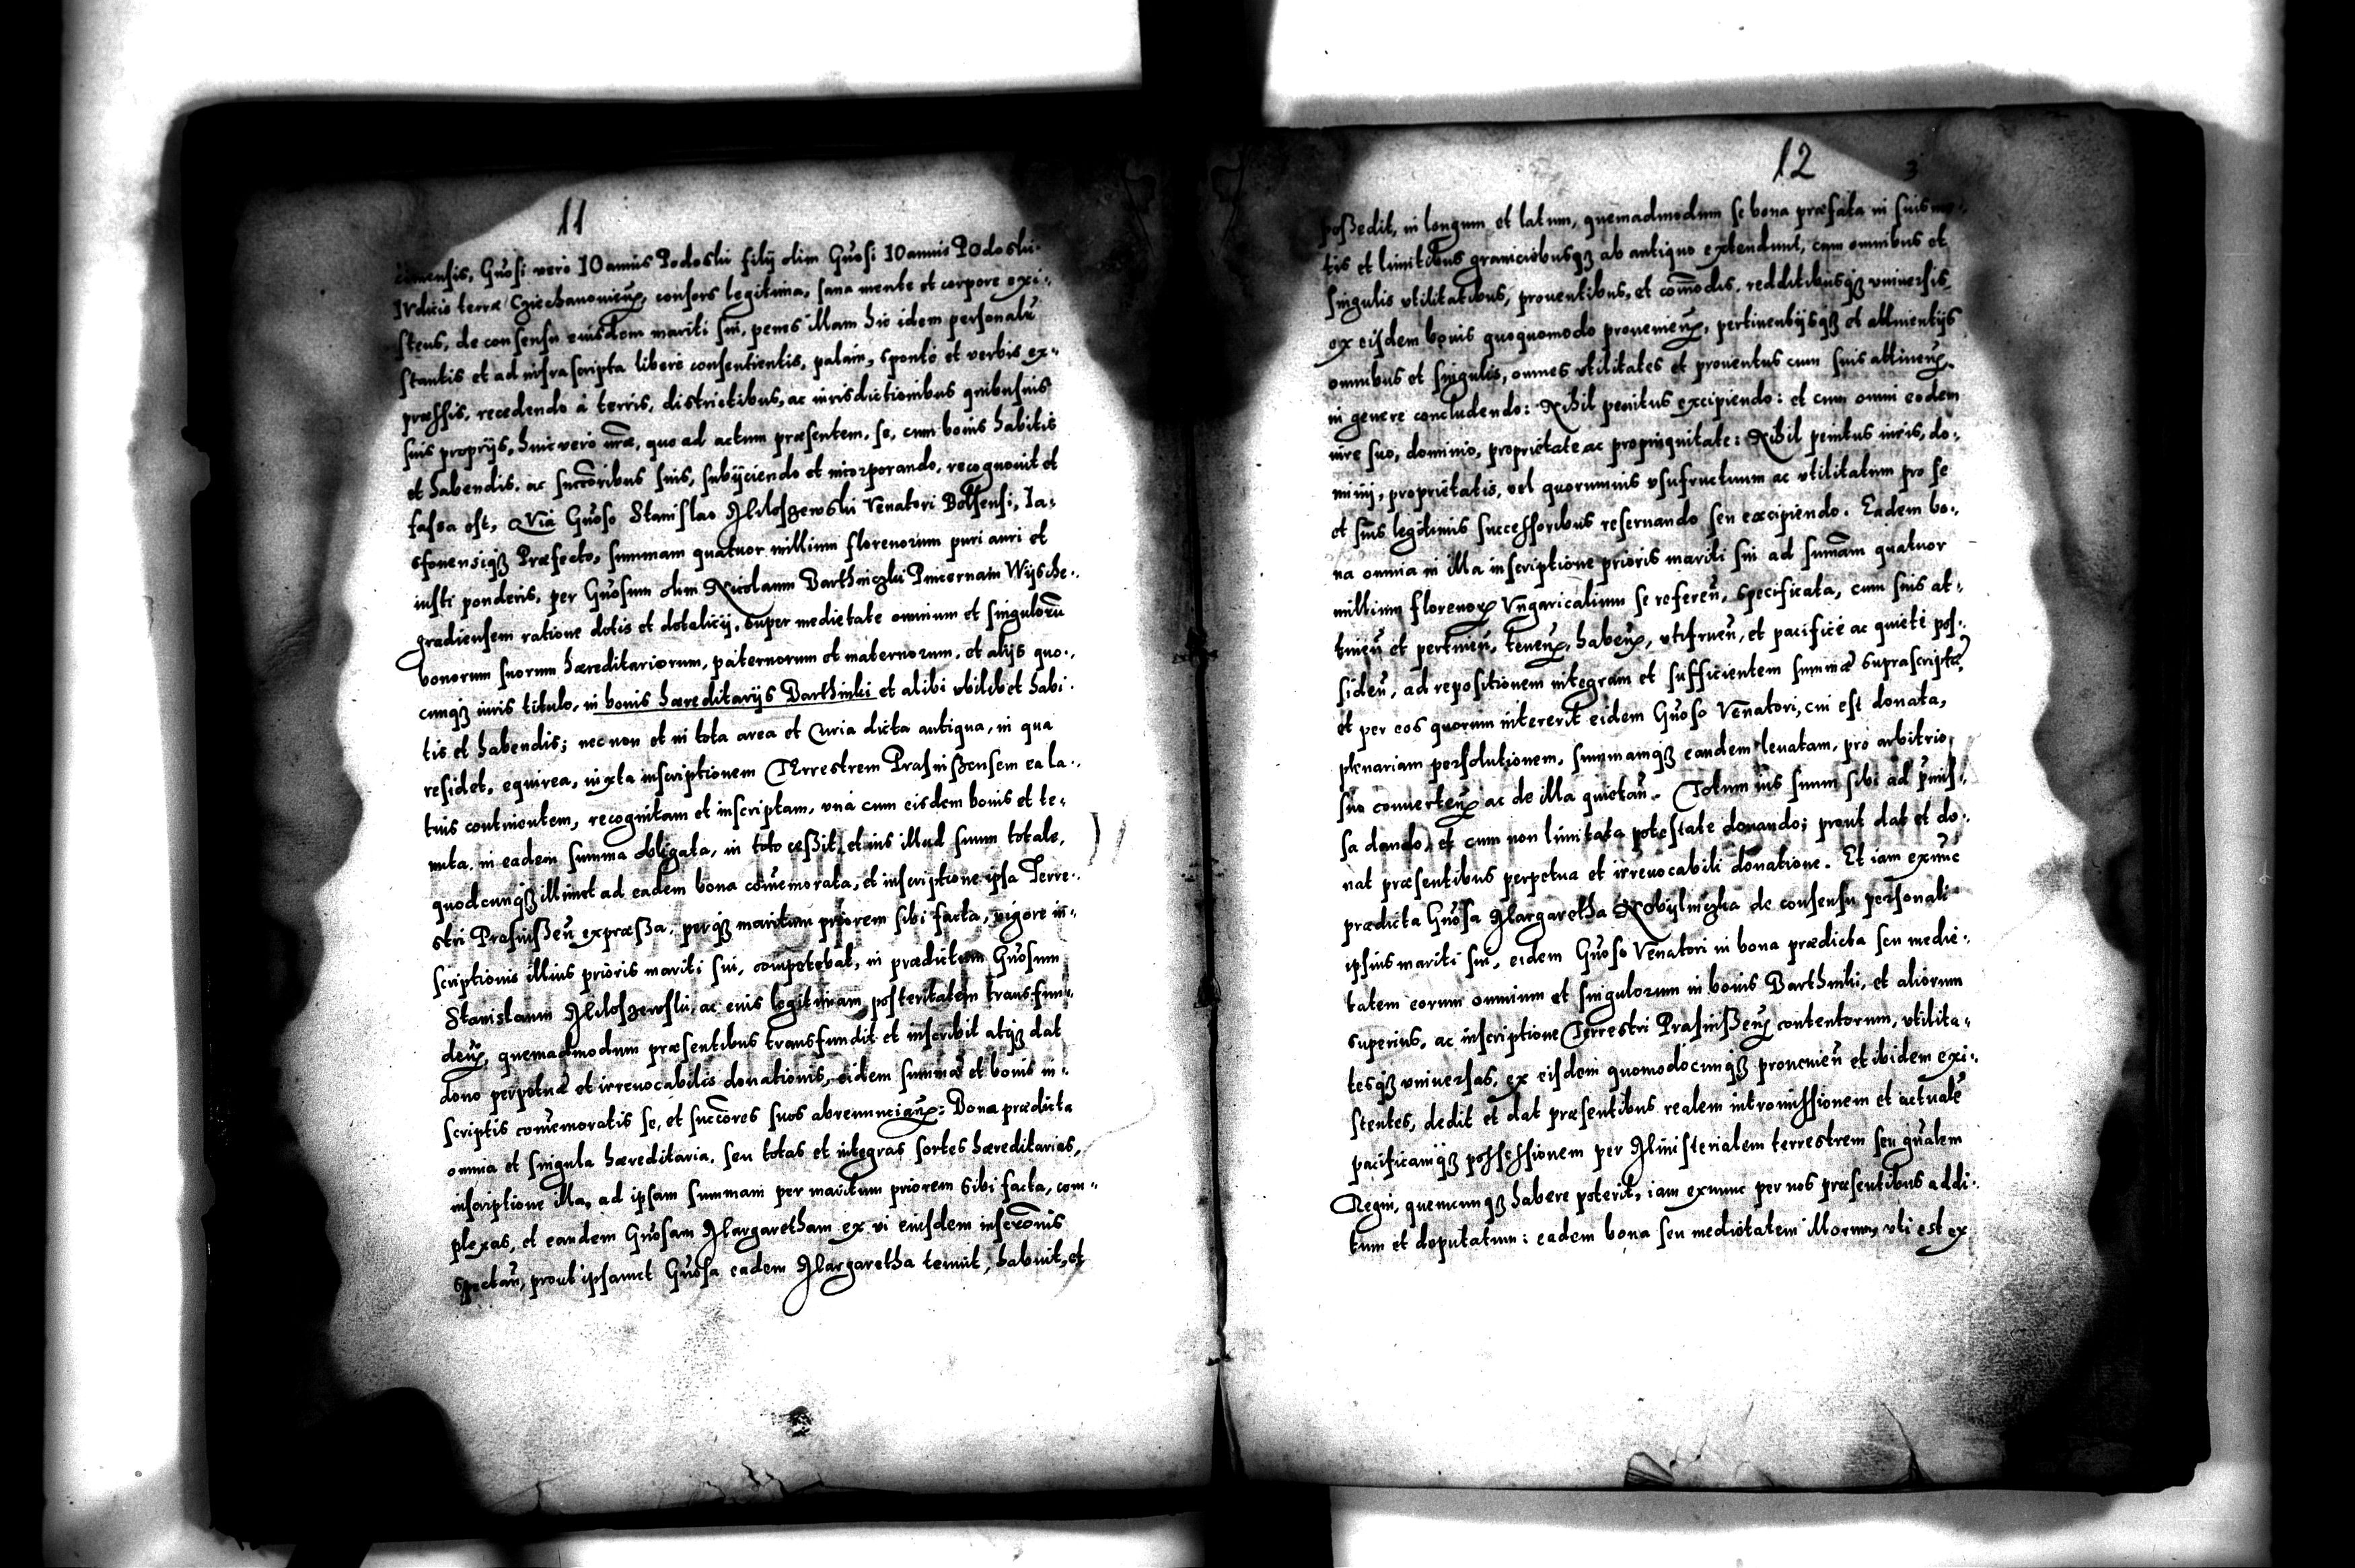 11
cimensis, Gnosi vero IOannis Podoski filij olim Gnosi IOannis POdoski
IVdicis terræ Cziechanovien, consors legitima, sana mente et corpore exi-
stens, de consensu eiusdem mariti sui, penes illam hic idem personalr
stantis et ad infrascripta libere consentientis, palam, sponte et verbis ex-
præssis, recedendo à terris, districtibus, ac iurisdictionibus quibusuis
suis proprijs, huic vero nræ, quo ad actum præsentem, se, cum bonis habitis
et habendis, ac succoribus suis, subijciendo et incorporando, recognouit et
fassa est, Qvia Gnoso Stanislao Mloszewski Venatori Belsensi, Ia-
sfonensiqz Præfecto, summam quatuor millium florenorum puri auri et
iusti ponderis, per Gnosum olim Nicolaum Barthniczki Pincernam Wysche-
gradiensem ratione dotis et dotalicij, super medietate omnium et singuloru
bonorum suorum hæreditariorum, paternorum et maternorum, et alijs quo-
cunqz iuris titulo, in bonis hæreditarijs Barthniki et alibi vbilibet habi-
tis et habendis; nec non et in tota area et Curia dicta antiqua, in qua
residet, equirea, iuxta inscriptionem TErrestrem Prasnissensem ea la-
tius continentem, recognitam et inscriptam, vna cum eisdem bonis et te-
nuta, in eadem summa obligata, in toto cessit, et ius illud suum totale,
quodcunqz illimet ad eadem bona comemorata, et inscriptione ipsa Terre-
stri Prasnissen expræssa, perqz maritum priorem sibi facta, vigore in-
scriptionis illius prioris mariti sui, competebat, in prædictum Gnosum
Stanislaum Mloszewski, ac eius legitimam posteritatem transfun-
den, quemadmodum præsentibus transfundit et inscribit atqz dat
dono perpetuæ et irreuocabilis donationis, eidem summæ et bonis in-
scriptis comemoratis se, et succores suos abrenuncian: Bona prædicta
omnia et singula hæreditaria, seu totas et integras sortes hæreditarias,
inscriptione illa, ad ipsam summam per maritum priorem sibi facta, com-
plexas, et eandem Gnosam Margaretham ex vi eiusdem inscronis
spectan, prout ipsamet Gnosa eadem Margaretha tenuit, habuit, et
12
3
possedit, in longum et latum, quemadmodum se bona præfata in suis me-
tis et limitibus graniciebusqz ab antiquo extendunt, cum omnibus et
singulis vtilitatibus, prouentibus, et comodis, redditibusqz vniuersis
ex eisdem bonis quoquomodo prouenien, pertinentijsqz et attinentijs
omnibus et singulis, omnes vtilitates et prouentus cum suis attinen.
in genere concludendo: Nihil penitus excipiendo: et cum omni eodem
iure suo, dominio, proprietate, ac propinquitate: Nihil penitus iuris, do-
minij, proprietatis, vel quorumuis vsufructuum ac vtilitatum pro se
et suis legitimis successoribus reseruando seu excipiendo. Eadem bo-
na omnia in illa inscriptione prioris mariti sui ad sumam quatuor
millium florenor Vngaricalium se referen, specificata, cum suis at-
tinen et pertinen, tenen, haben, vtifruen, et pacifice ac quiete pos-
siden, ad repositionem integram et sufficientem summæ suprascriptæ,
et per eos quorum intererit eidem Gnoso Venatori, cui est donata,
plenariam persolutionem, summamqz eandem leuatam, pro arbitrio
suo conuerten ac de illa quietan. Totum ius suum sibi ad pmis-
sa dando, et cum non limitata potestate donando; prout dat et do-
nat præsentibus perpetua et irreuocabili donatione. Et iam exnunc
prædicta Gnosa Margaretha Kobylniczka de consensu personali
ipsius mariti sui, eidem Gnoso Venatori in bona prædicta seu medie-
tatem eorum omnium et singulorum in bonis Barthniki, et aliorum
superius, ac inscriptione Terrestri Prasnissen contentorum, vtilita-
tesqz vniuersas, ex eisdem quomodocunqz prouenien et ibidem exi-
stentes, dedit et dat præsentibus realem intromissionem et actuale
pacificamqz possessionem per Ministerialem terrestrem seu gnalem
Regni, quemcunqz habere poterit, iam exnunc per nos præsentibus addi-
tum et deputatum: eadem bona seu medietatem illorum, vti est ex